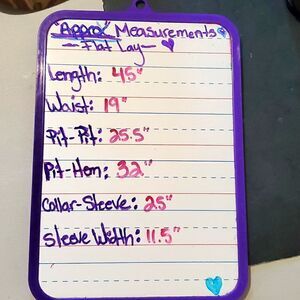 "Approx" Measurements
~Flat Lay~
Length: 45"
Waist: 19"
Pit-Pit: 25.5"
Pit-Hem: 32"
Collar-Sleeve: 25"
Sleeve Width: 11.5"